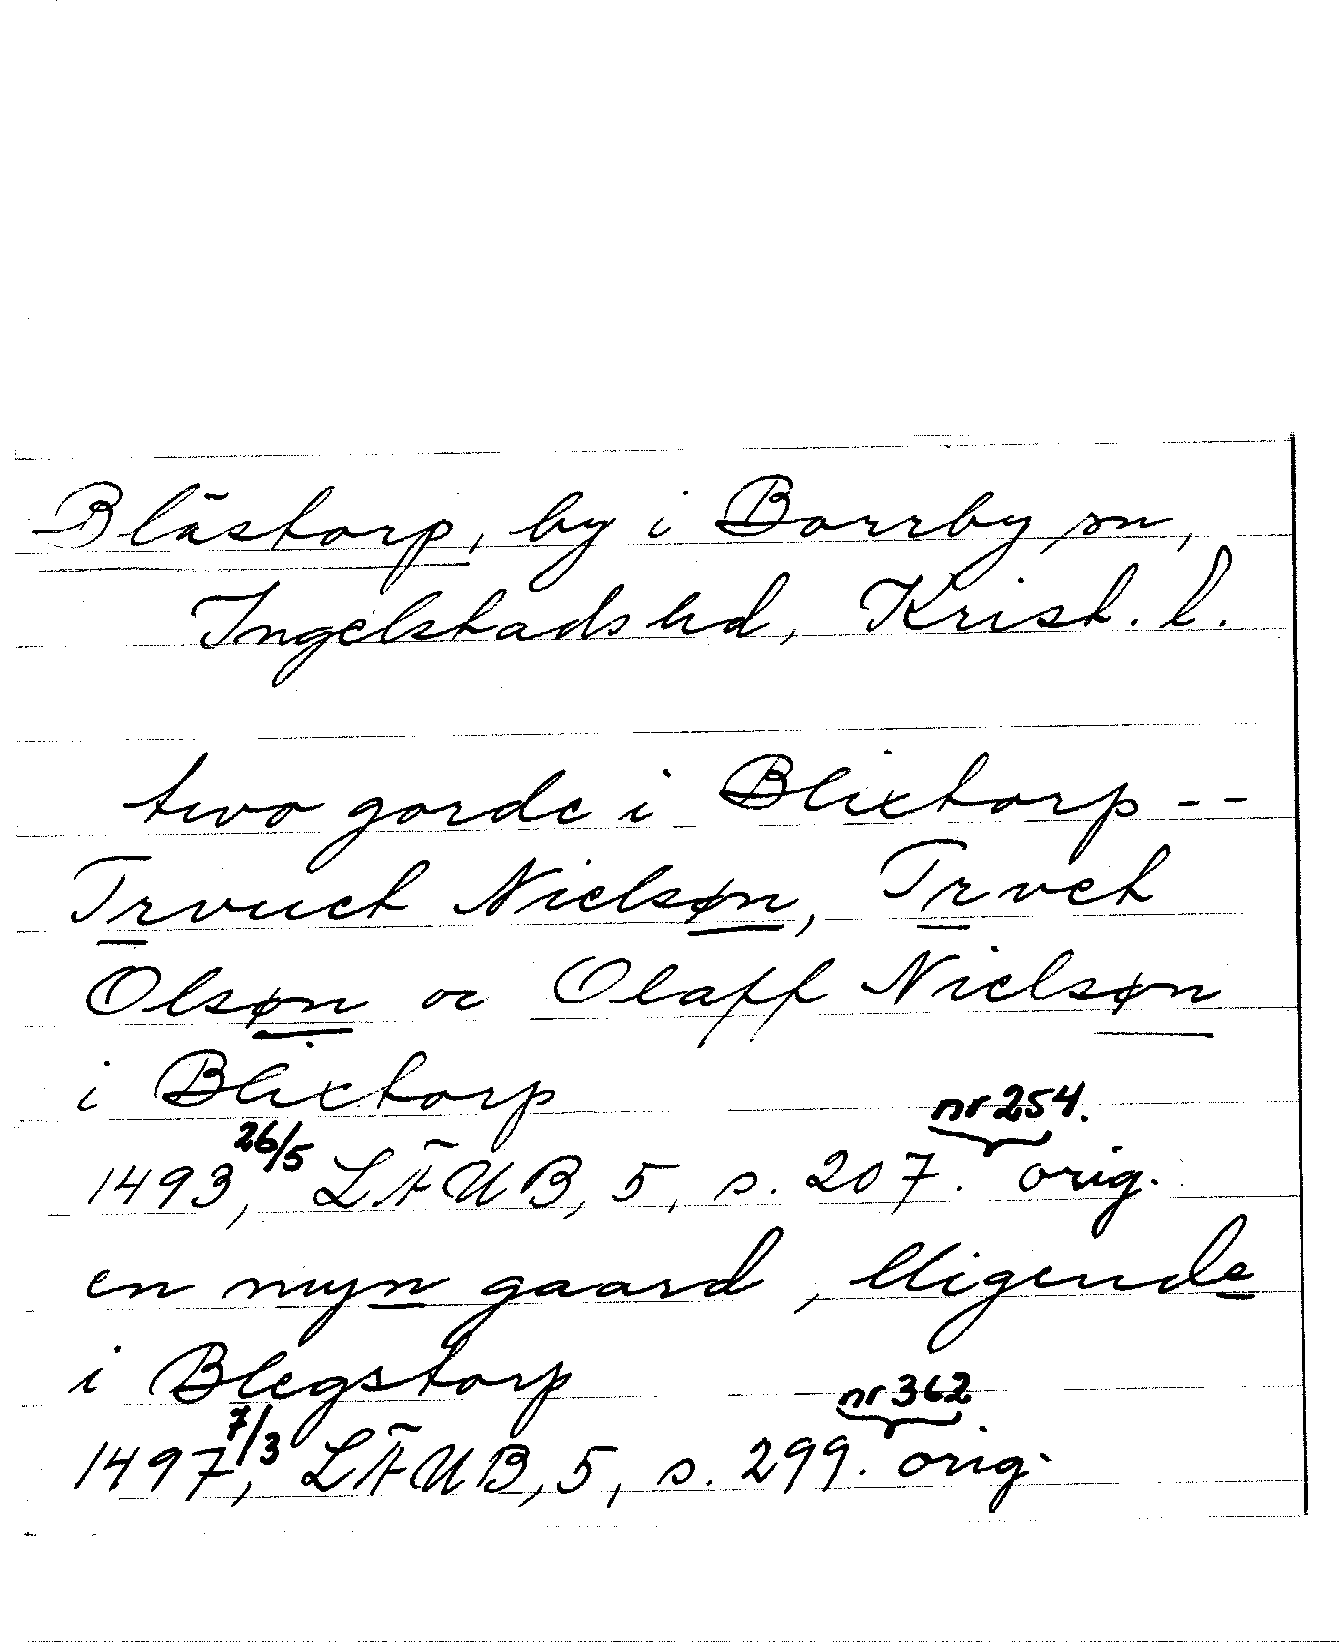 Blästorp, by i Borrby sn,
Ingelstads hd, Krist. l.
two gorde i Blixtorp --
Trvuct Nielsøn, Trvct
Olsøn oc Olaff Nielsøn
i Blixtorp
nr 254.
1493, 26/5 LÄUB, 5, s. 207. orig.
en myn gaard, lligende
i Blegstorp
nr 362
1497, 7/3 LÄUB, 5, s. 299. orig.